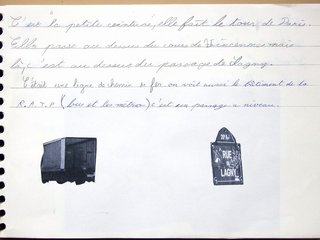 C'est la petite ceinture, elle fait le tour de Paris.
Elle passe au dessus du cours de Vincennes mais
là, c'est au dessus du passage de Lagny.
C'était une ligne de chemin de fer. on voit aussi le bâtiment de la
R.A.T.P (bus et les métros) c'est un passage a niveau.
20e Arrt
RUE
DE
LAGNY